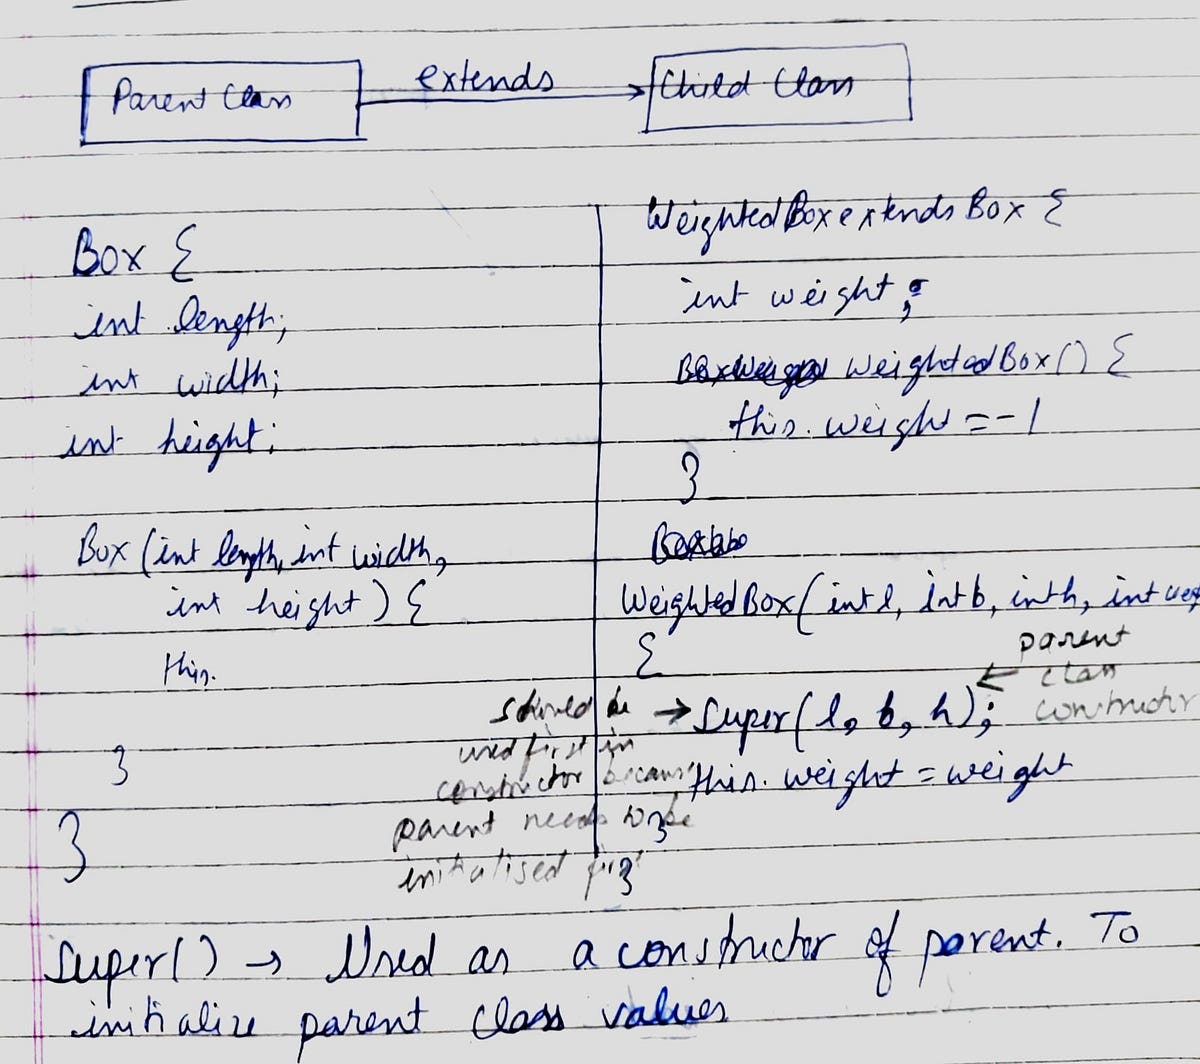 Parent Class
extends
Child Class
Box {
int length;
int width;
int height;
Box (int length, int width,
int height) {
this.
}
}
WeightedBox extends Box {
int weight;
WeightedBox() {
this.weight = -1
}
WeightedBox(int l, int b, int h, int
{
→ Super(l, b, h);
← parent
class
constructor
should be
used first in
constructor because
parent needs to be
initialised first
this.weight = weight
}
}
Super() → Used as a constructor of parent. To
initialize parent class values